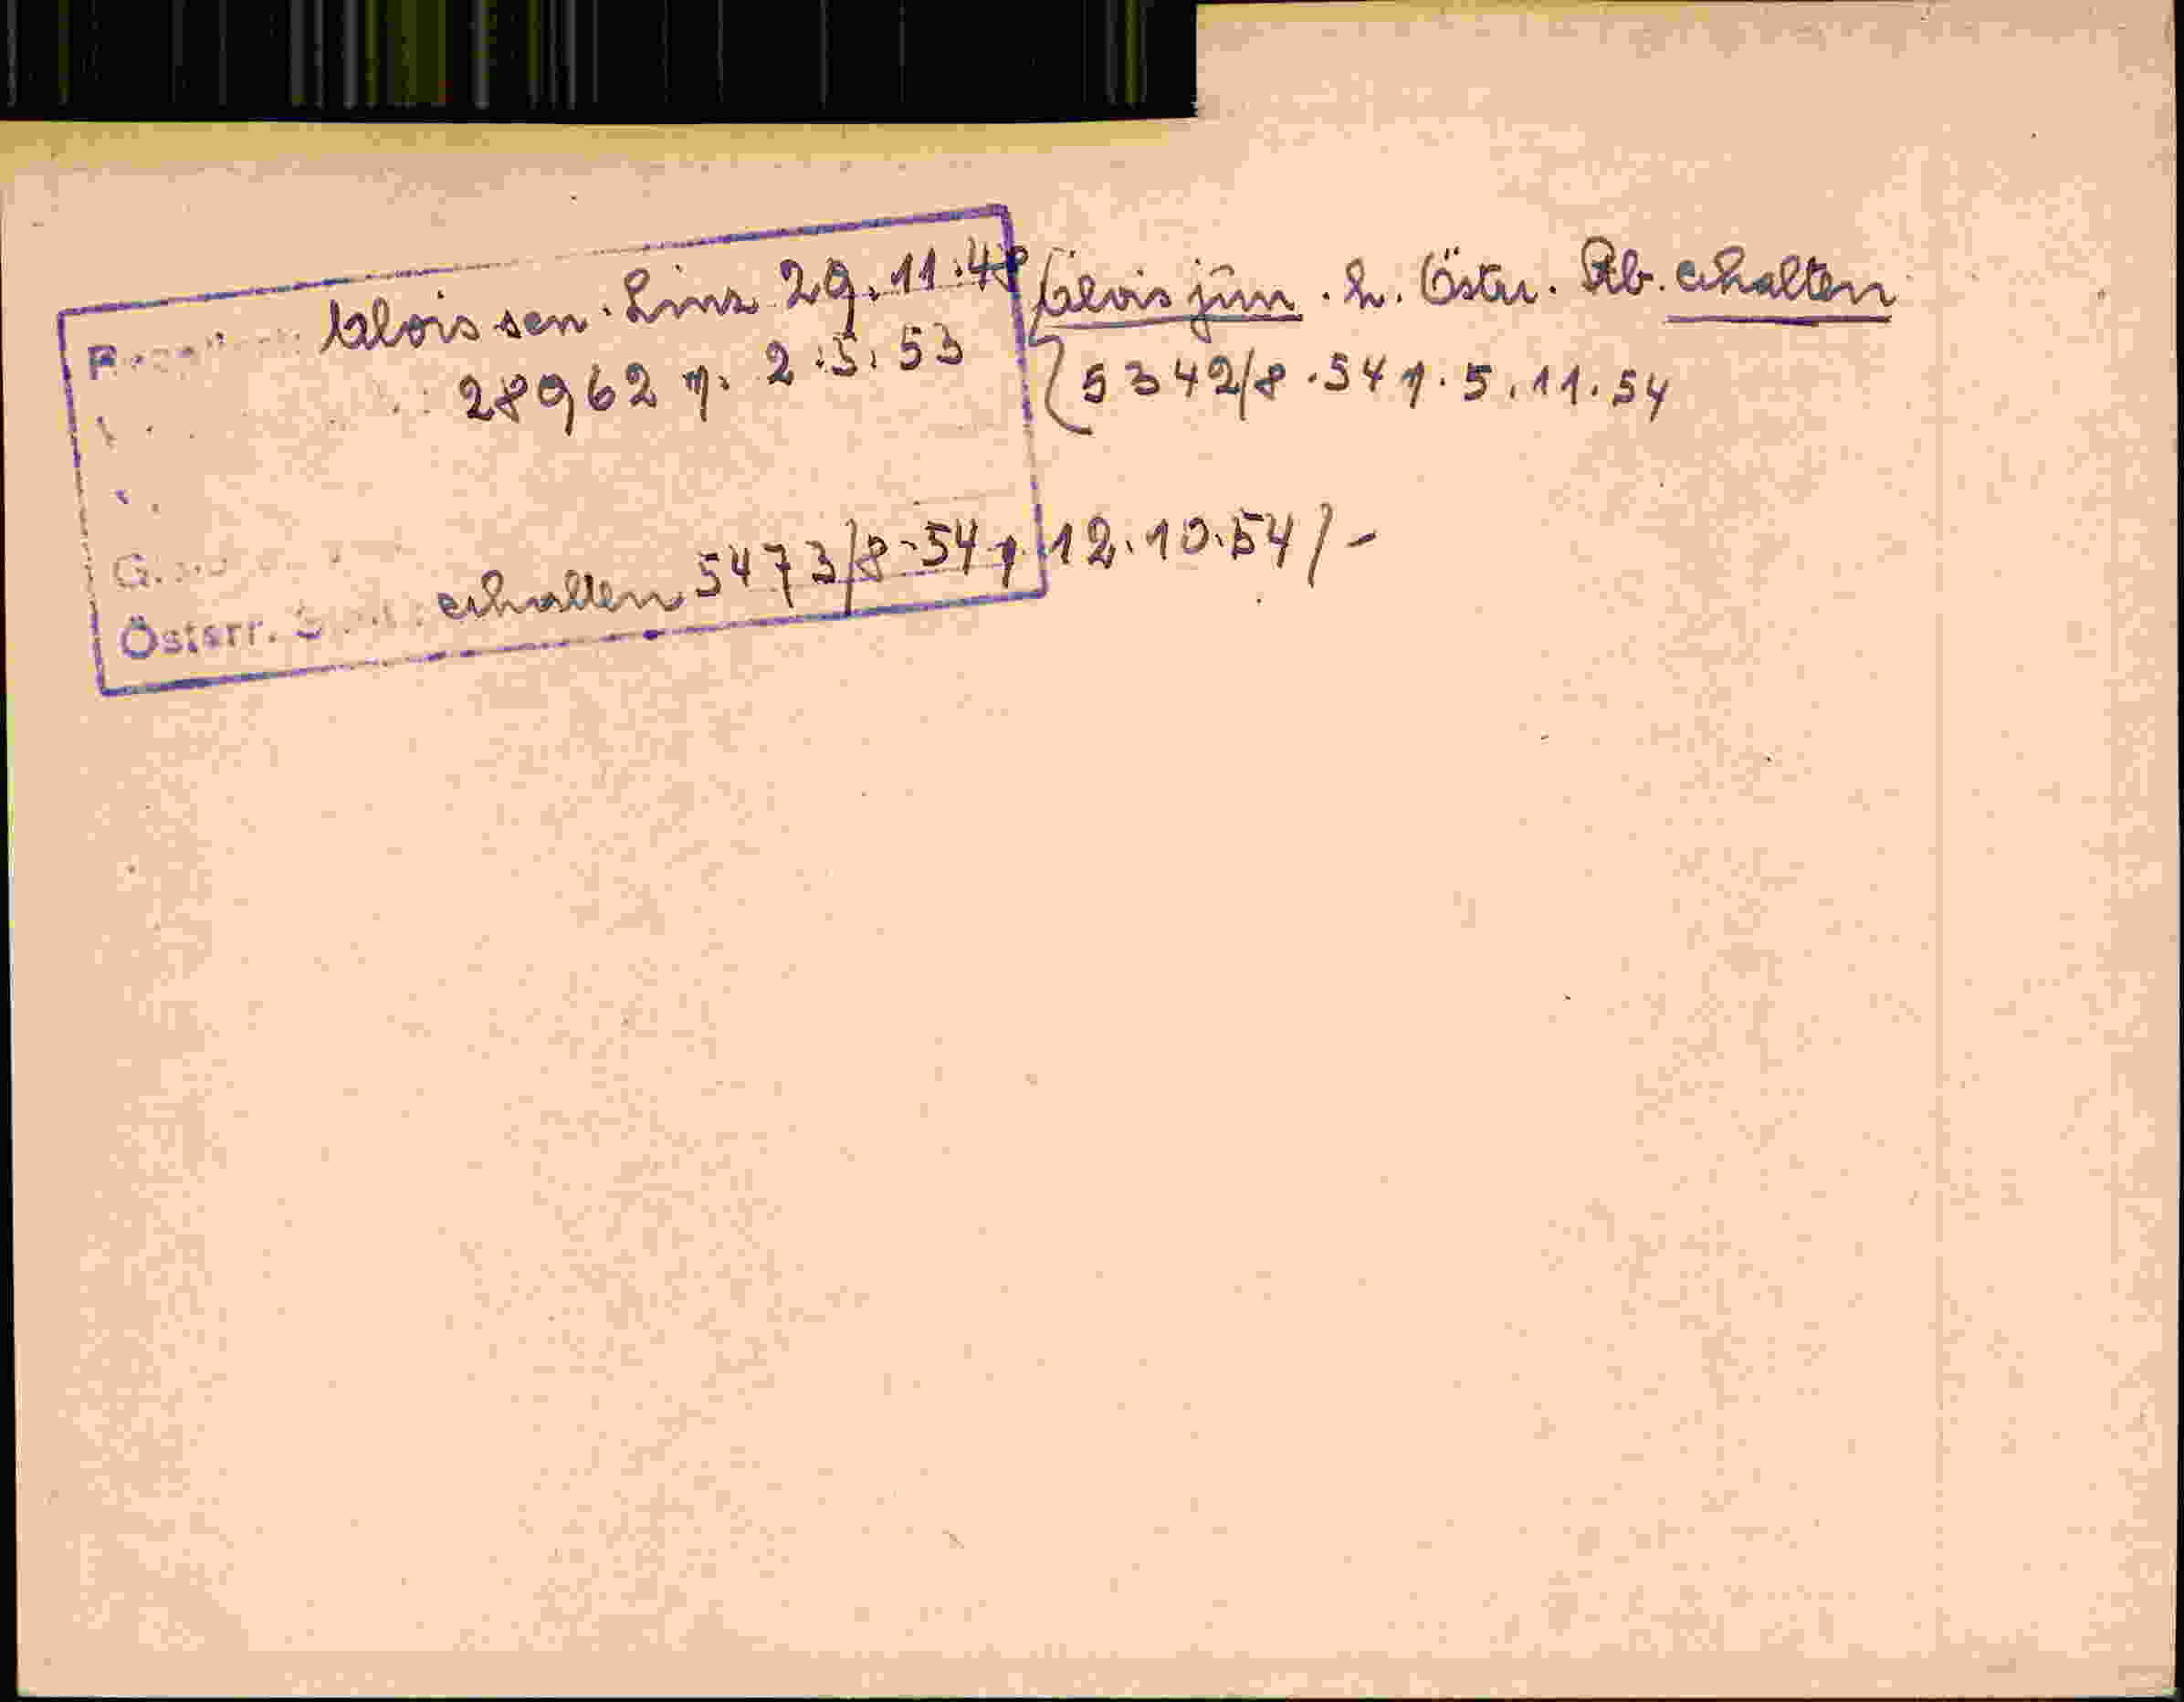 Alois sen. Linz 29.11.48 Alois jun. h. Österr. Stb. erhalten
28962 v. 2.5.53 5342/8.54 v. 5.11.54
Österr. erhalten 5473/8-54 v. 12.10.54/-